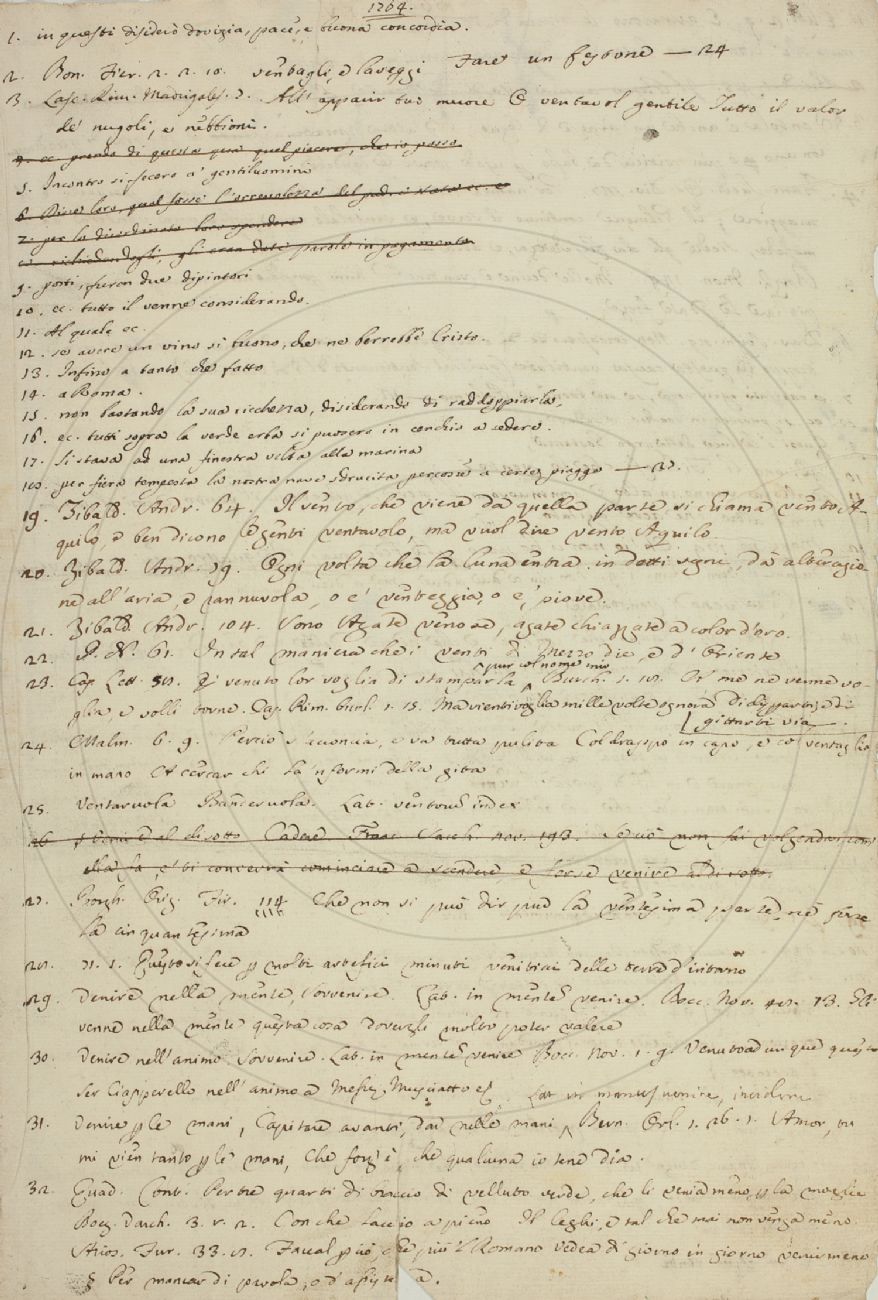 1764.
1. in questi disiderò dovizia, pace, e buona concordia.
2. Bon. Fier. 2. 2. 10. ventagli, e laveggi Fare un festone — 24
3. Lasc. Rim. Madrigales. 3. All' apparir tuo muore E ventavol gentile Tutto il valor
de' nugoli, e nebbioni.
4. ec. prende di questa quel piacere, che io posso
5. Incontro si fecero a' gentiluomini
6. loro, qual fosse l'orrevolezza del
7. per lo disordinato loro spendere
richiedendogli, gli eran date parole in pagamento
9. posti, furon due dipintori
10. ec. tutto il venne considerando.
11. Al quale ec.
12. se avere un vino sì buono, che ne berrebbe Cristo.
13. Infino a tanto che fatto
14. a Roma.
15. non bastando la sua ricchezza, disiderando di raddoppiarla,
16. ec. tutti sopra la verde erba si puosero in cerchio a sedere.
17. Si stava ad una finestra volta alla marina
18. per fiera tempesta la nostra nave sdrucita percosse a certe piagge —
19. Zibald. Andr. 64. Il vento, che viene da quella parte si chiama vento A-
quilo e ben dicono le genti ventavolo, ma vuol dire vento Aquilo.
20. Zibald. Andr. 39. Ogni volta che la luna entra in detti segni, dà alterazio-
ne all'aria, e rannuvola, o e' venteggia, o e' piove.
21. Zibald. Andr. 104. Sono Agate venose, agate chiazzate a color d'oro.
22. 61. In tal maniera che i venti di mezzo die, e d' Oriente
pur col nome mio
23. Car. Lett. è venuto lor voglia di stamparla Burch. 1. Or me ne venne vo-
glia, e volli torne. Cas. Rim. burl. 1. 15. Ma vienti voglia mille volte ognora Di dispartire e di
gittarti via.
24. Malm. 6. 9. Perciò s'acconcia, e va tutta pulita Col drappo in capo, e col ventaglio
in mano A cercar chi la 'nformi della gita
25. Ventaruola Banderuola. Lat. index
26 Venire al disotto Cadere Franc. Sacch. nov. 193. Se ciò non fai volgendosi com'
ella fa, e' ti converrà cominciare a scendere, e forse venire al di sotto.
27. Borgh. Orig. Fir. 114 Che non si può dir pure la ventesima parte, nè forse
la cinquantesima
28. Questo si fece per molti artefici minuti venitici delle terre d'intorno
29. Venire nella mente, Sovvenire. Lat. in mentem venire. Bocc. Nov. 13. Gli
venne nella mente questa cosa dovergli molto poter valere
30. Venire nell'animo. Sovvenire. Lat. in mentem venire Bocc. Nov. 1. 9. Venuto adunque questo
Ser Ciapperello nell' animo a Messer Musciatto ec. Lat. in mentem venire, incidere
31. Venire per le mani, Capitare avanti, dar nelle mani Bern. Orl. 1. 26. 1. Amor, tu
mi vien tanto per le mani, Che forz' è, che qualcuna io te ne dia.
32. Quad. Cont. Per tre quarti di braccio di velluto verde, che li venia meno per la moglie
Boez. Varch. 3. r. 2. Con che laccio a pieno Il leghi, e tal che mai non venga meno.
Arios. Fur. 33. Faceal che più 'l Romano vedea di giorno in giorno venir meno
§ Per mancar di parola, o d'